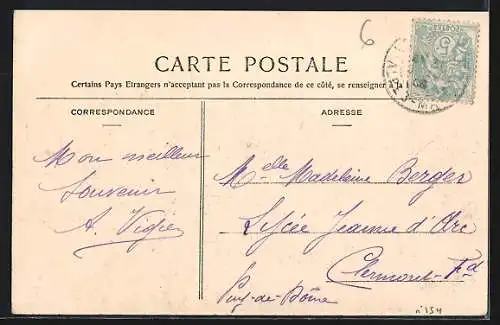 6
CARTE POSTALE
Certains Pays Etrangers n'acceptent pas la Correspondance de ce côté, se renseigner à la
CORRESPONDANCE
ADRESSE
Mon meilleur
souvenir
A. Vigié
Melle Madeleine Berger
Lycée Jeanne d'Arc
Clermont-Fd
Puy-de-Dôme
n°154